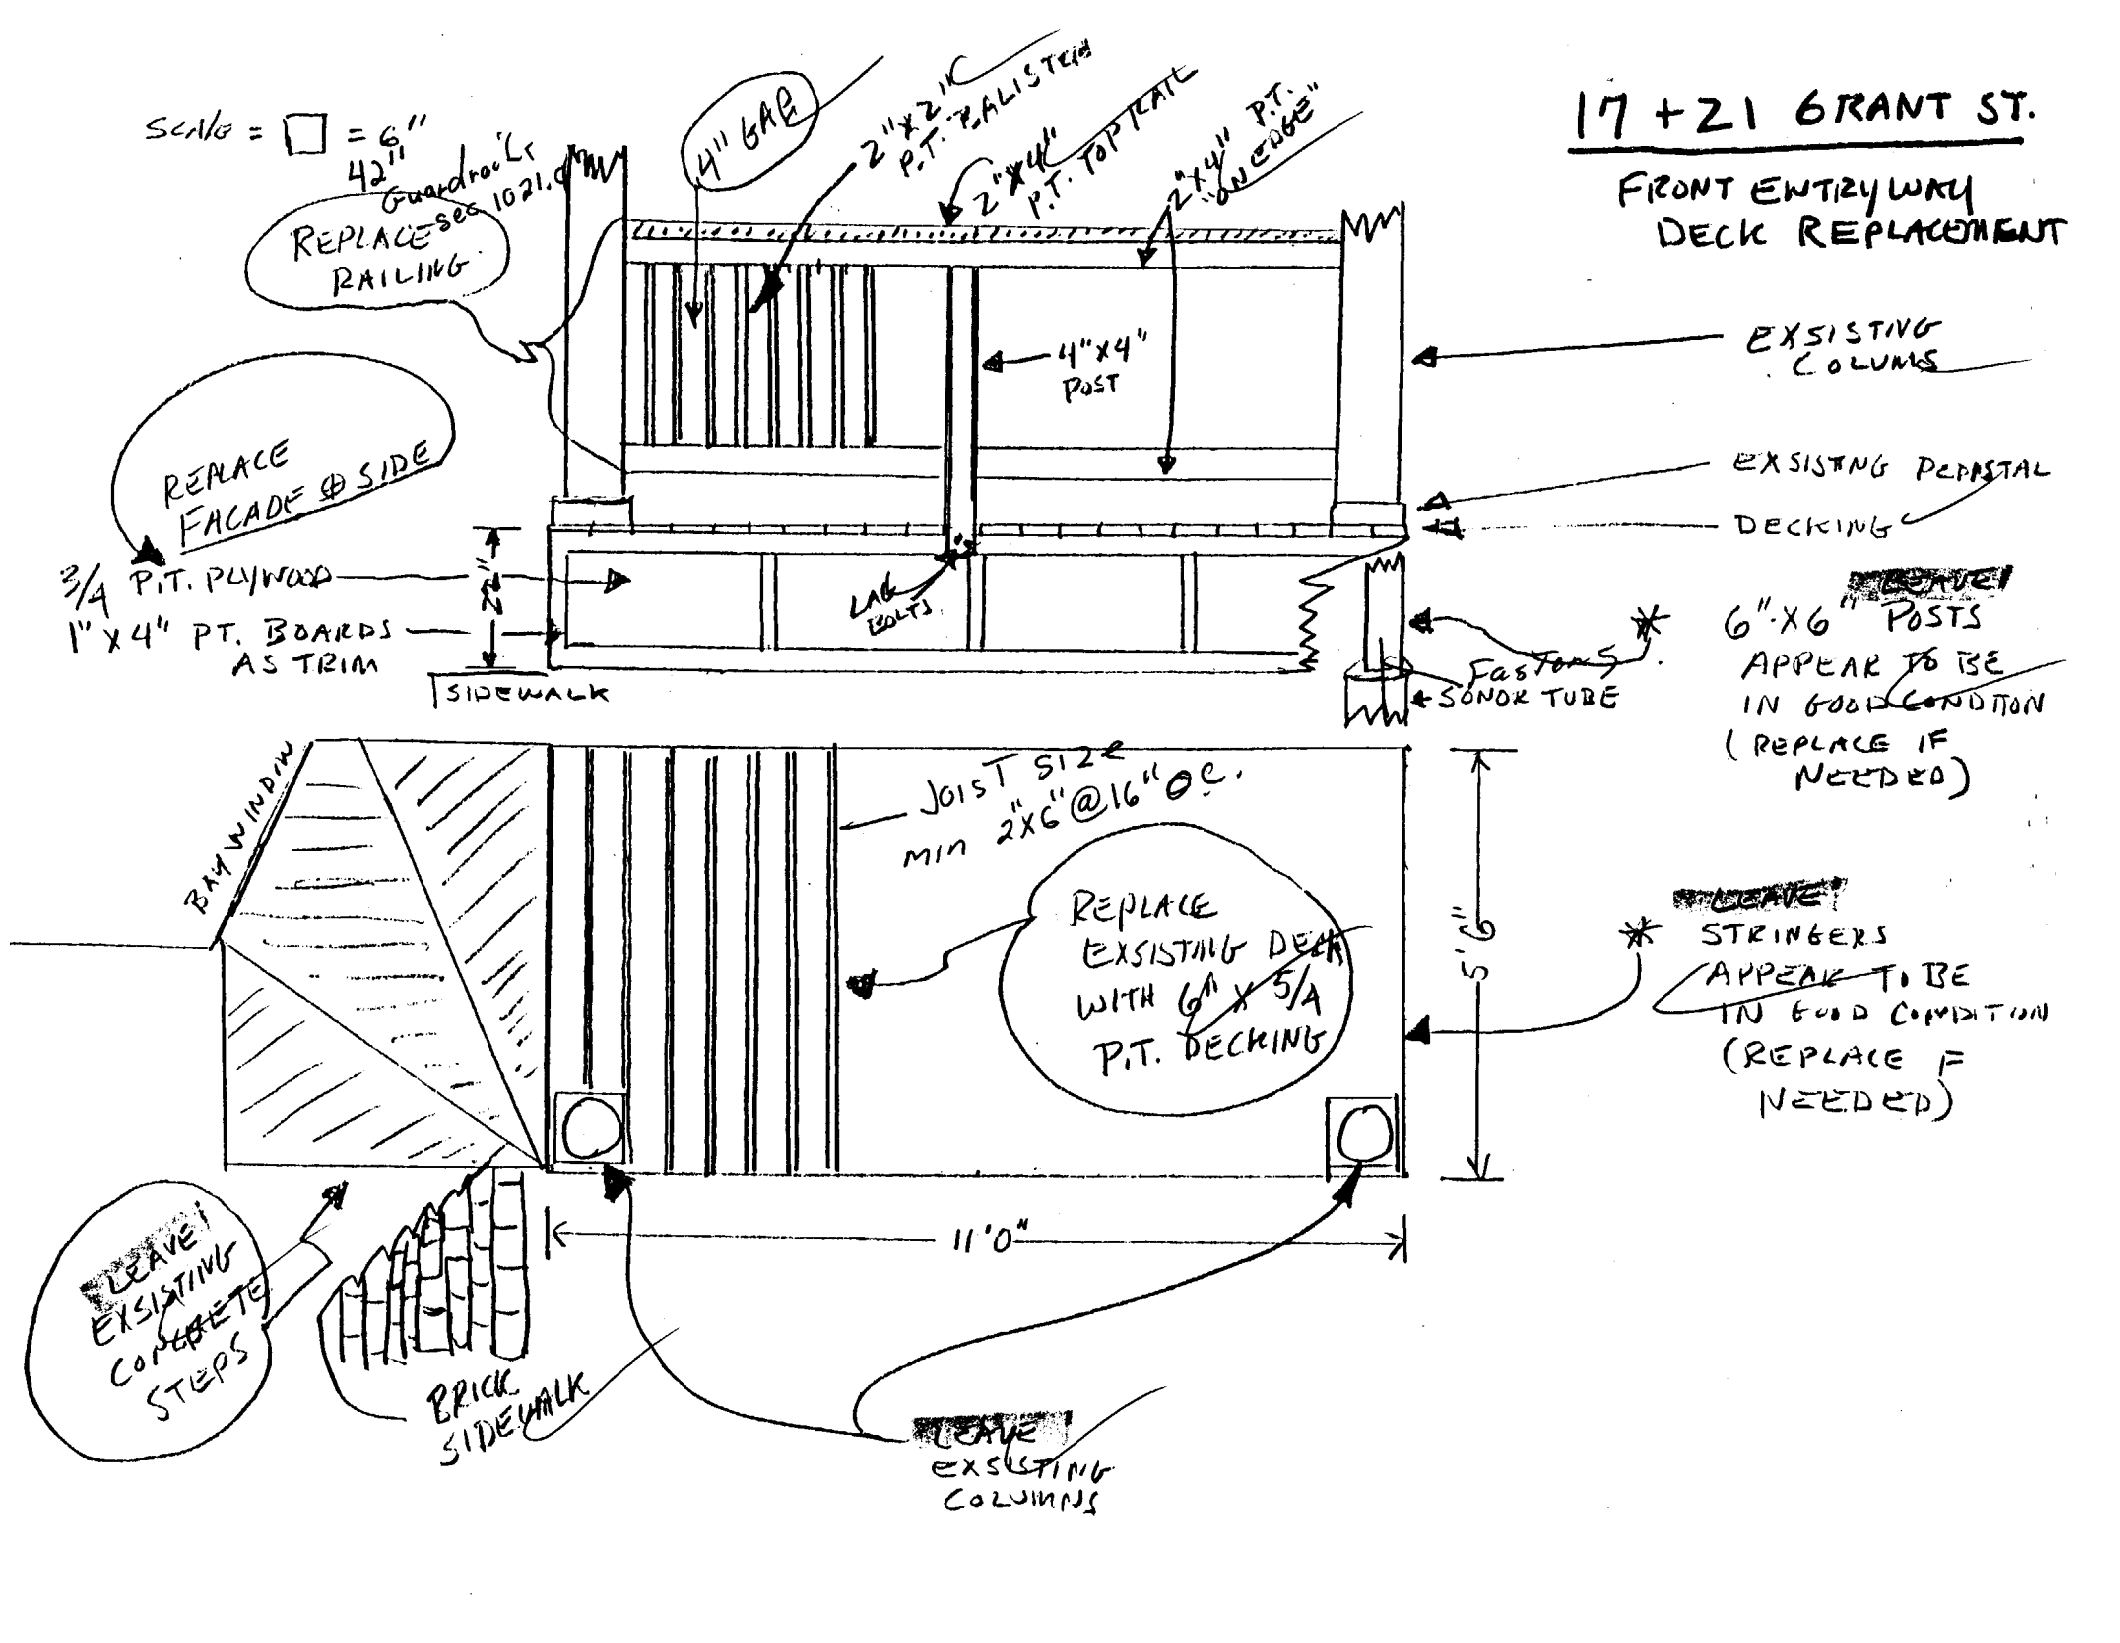 17 + 21 GRANT ST.
FRONT ENTRYWAY
DECK REPLACEMENT
SCALE = □ = 6"
42"
Guardrail
sec 1021.
REPLACE
RAILING
4" GAP
2" X 2"
P.T. BALISTER
2" X 4"
P.T. TOP RAIL
2" X 4" P.T.
"ON EDGE"
4" X 4"
POST
EXSISTING
COLUMS
EXSISTING PEDASTAL
DECKING
REPLACE
FACADE @ SIDE
3/4 P.T. PLYWOOD
1" X 4" PT. BOARDS
AS TRIM
SIDEWALK
LAG
BOLTS
Fastons
SONOR TUBE
LEAVE
6" X 6" POSTS
APPEAR TO BE
IN GOOD CONDITION
(REPLACE IF
NEEDED)
BAY WINDOW
JOIST SIZE
min 2"X6" @ 16" OC.
REPLACE
EXSISTING DECK
WITH 6" X 5/4
P.T. DECKING
5' 6"
LEAVE
STRINGERS
APPEAR TO BE
IN GOOD CONDITION
(REPLACE IF
NEEDED)
11'0"
LEAVE
EXSISTING
CONCRETE
STEPS
BRICK
SIDEWALK
LEAVE
EXSISTING
COLUMNS